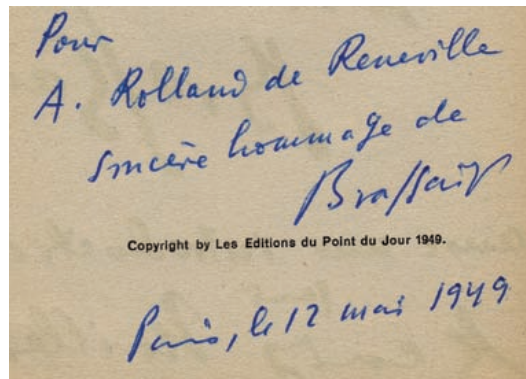 Pour
A. Rolland de Reneville
sincère hommage de
Brassaï
Copyright by Les Editions du Point du Jour 1949.
Paris, le 12 mai 1949